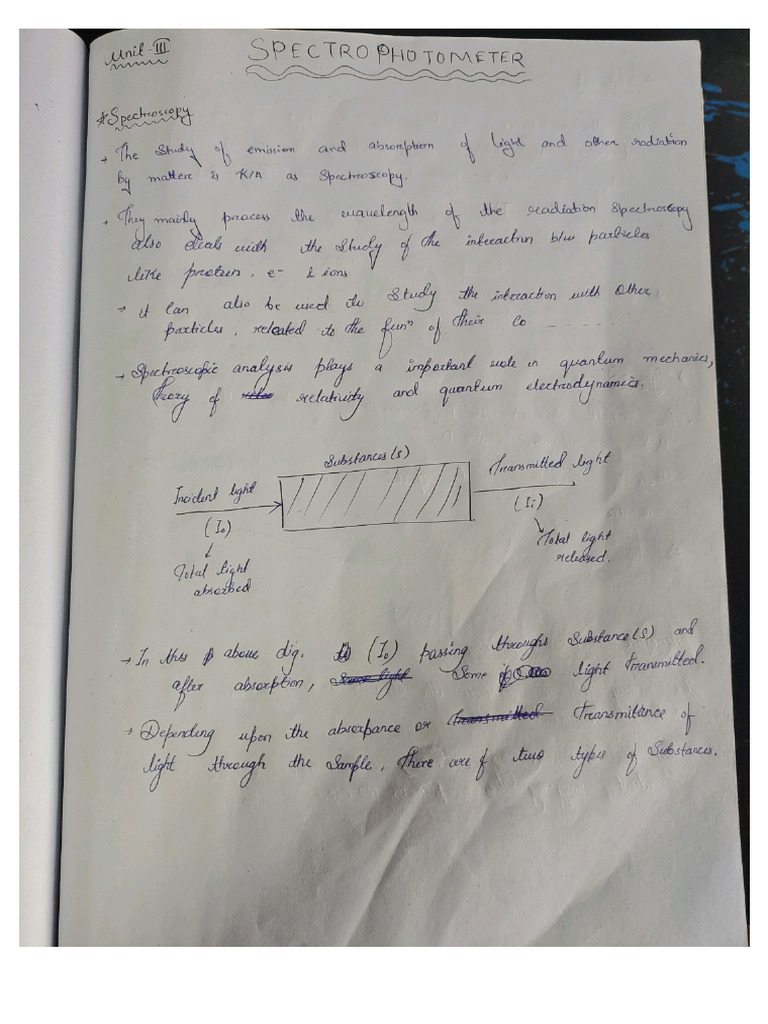 Unit-III
SPECTROPHOTOMETER
*Spectroscopy
→ The Study of emission and absorption of light and other radiation
by matter is K/n as Spectroscopy.
→ They mainly process the wavelength of the readiation Spectroscopy
also deals with the Study of the interaction b/w particles
like protein, e- & ions
→ it Can also be used to Study the interaction with Other
particles, releated to the funⁿ of their Co ------
→ Spectroscopic analysis plays a important role in quantum mechanics,
Theory of relativity and quantum electrodynamics.
Substances(s)
Incident light
Transmitted light
(I₀)
(Ii)
Total light
absorbed
Total light
released.
→ In this above dig. (I₀) passing throughs Substance(s) and
after absorption, Some light transmitted.
→ Depending upon the absorpance or Transmitance of
light through the Sample, there are two types of Substances.